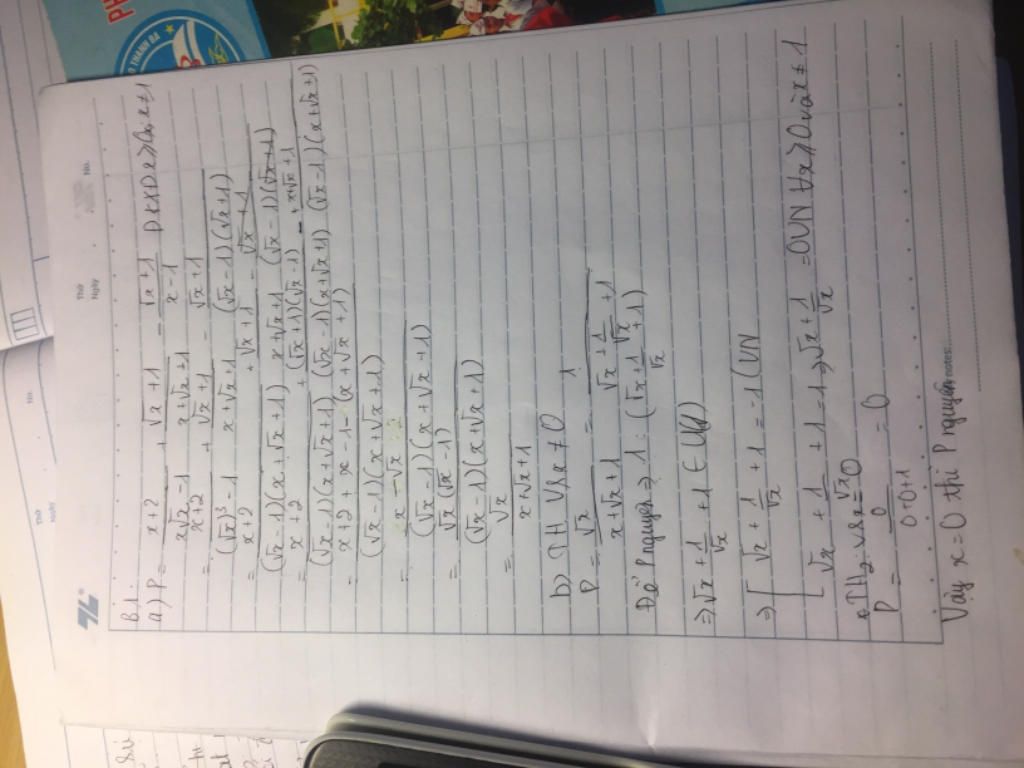 No.
Thứ
Ngày
B.1
a) P = x+2 / x√x −1 + √x +1 / x+√x+1 − √x+1 / x−1 ĐKXĐ x≥0, x≠1
= x+2 / (√x)³ −1 + √x+1 / x+√x+1 − √x+1 / (√x−1)(√x+1)
= x+2 / (√x−1)(x+√x+1) + √x+1 / x+√x+1 − √x+1 / (√x−1)(√x+1)
= x+2 / (√x−1)(x+√x+1) + (√x+1)(√x−1) / (√x−1)(x+√x+1) − x+√x+1 / (√x−1)(x+√x+1)
= x+2+x−1−(x+√x+1) / (√x−1)(x+√x+1)
= x−√x / (√x−1)(x+√x+1)
= √x(√x−1) / (√x−1)(x+√x+1)
= √x / x+√x+1
b) TH1: x≠0
P = √x / x+√x+1 = 1 / √x + 1/√x +1
Để P nguyên ⇒ 1 ⋮ (√x + 1/√x +1)
⇒ √x + 1/√x + 1 ∈ Ư(1)
⇒ [ √x + 1/√x +1 = −1 (VN
√x + 1/√x +1 = 1 ⇒ √x + 1/√x = 0 VN ∀x≥0 và x≠1
TH2: x=0
P = 0 / 0+0+1 = 0
Vậy x=0 thì P nguyên
notes: